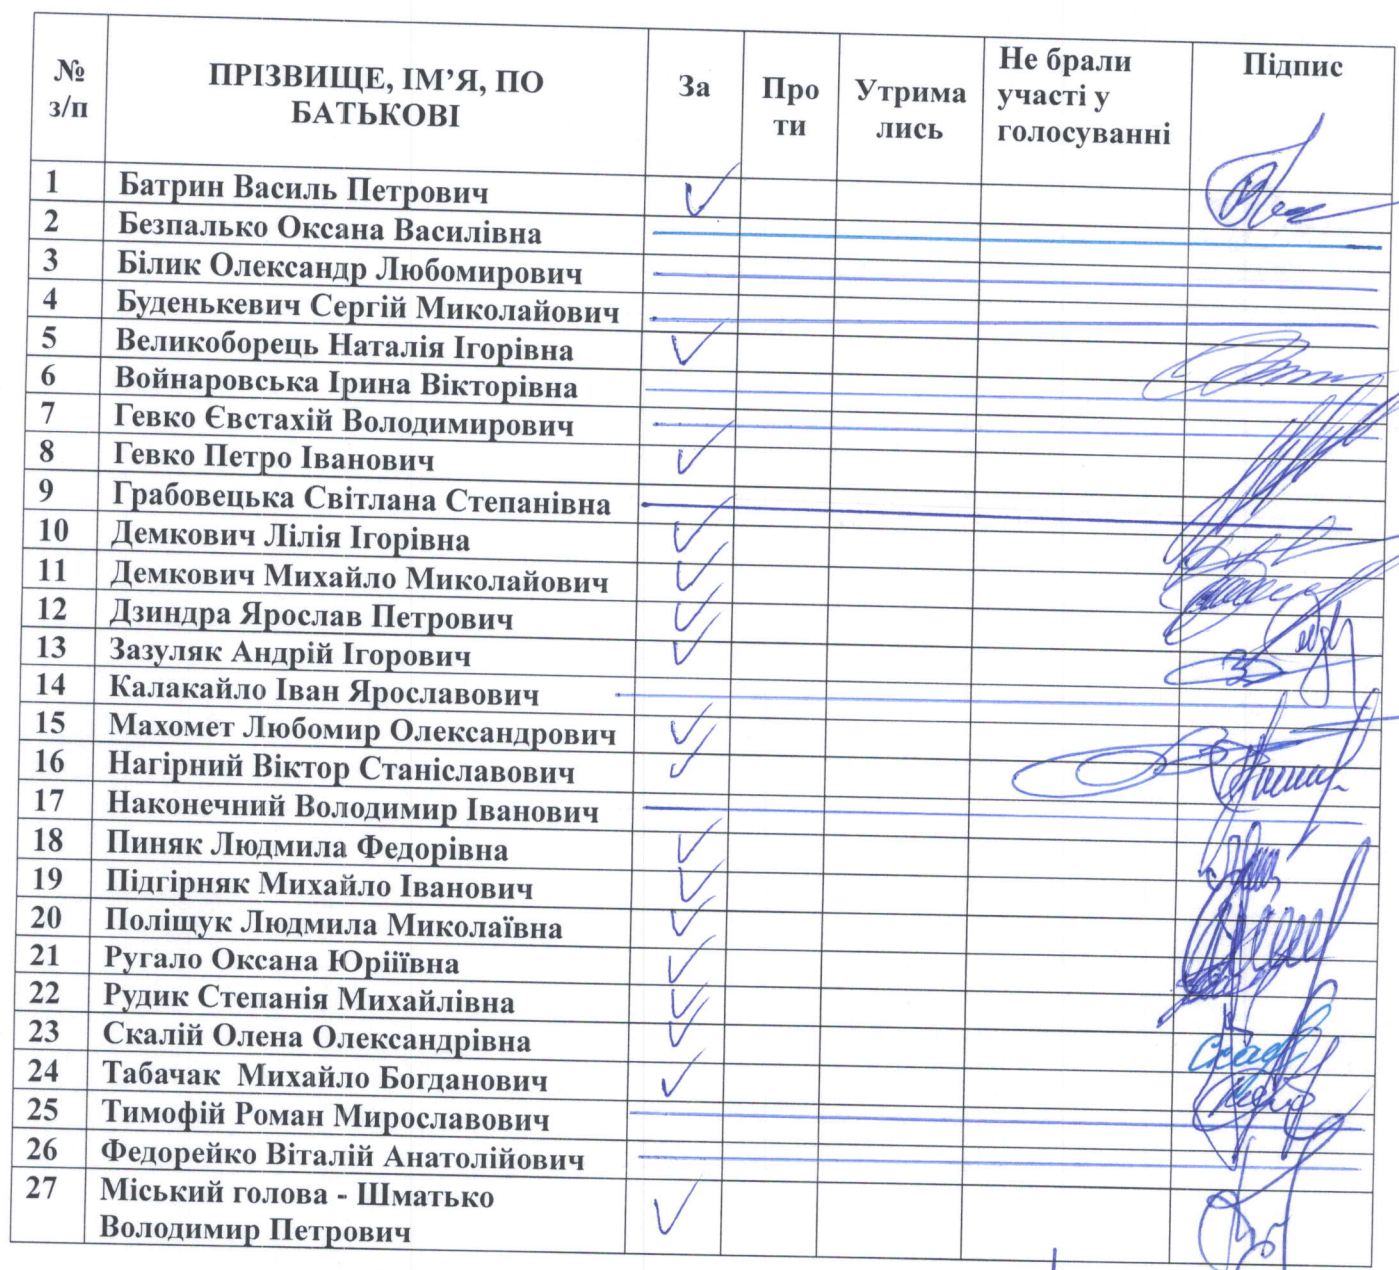 № з/п ПРІЗВИЩЕ, ІМ’Я, ПО БАТЬКОВІ За Про ти Утрима лись Не брали участі у голосуванні Підпис
1 Батрин Василь Петрович ✓
2 Безпалько Оксана Василівна
3 Білик Олександр Любомирович
4 Буденькевич Сергій Миколайович
5 Великоборець Наталія Ігорівна ✓
6 Войнаровська Ірина Вікторівна
7 Гевко Євстахій Володимирович
8 Гевко Петро Іванович ✓
9 Грабовецька Світлана Степанівна
10 Демкович Лілія Ігорівна ✓
11 Демкович Михайло Миколайович ✓
12 Дзиндра Ярослав Петрович ✓
13 Зазуляк Андрій Ігорович ✓
14 Калакайло Іван Ярославович
15 Махомет Любомир Олександрович ✓
16 Нагірний Віктор Станіславович ✓
17 Наконечний Володимир Іванович
18 Пиняк Людмила Федорівна ✓
19 Підгірняк Михайло Іванович ✓
20 Поліщук Людмила Миколаївна ✓
21 Ругало Оксана Юріїївна ✓
22 Рудик Степанія Михайлівна ✓
23 Скалій Олена Олександрівна ✓
24 Табачак Михайло Богданович ✓
25 Тимофій Роман Мирославович
26 Федорейко Віталій Анатолійович
27 Міський голова - Шматько
Володимир Петрович ✓